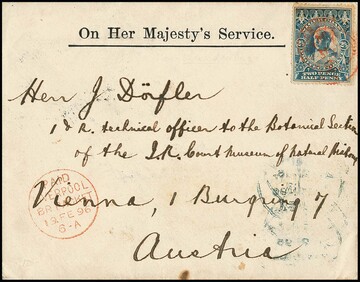 On Her Majesty's Service.
TWO PENCE
HALF PENNY
Herr J. Dörfler
I & R. technical officer to the Botanical Section
of the I. R. Court Museum of natural History
Vienna, 1 Burgring 7
Austria
PAID
LIVERPOOL
BR PACKET
FE 96